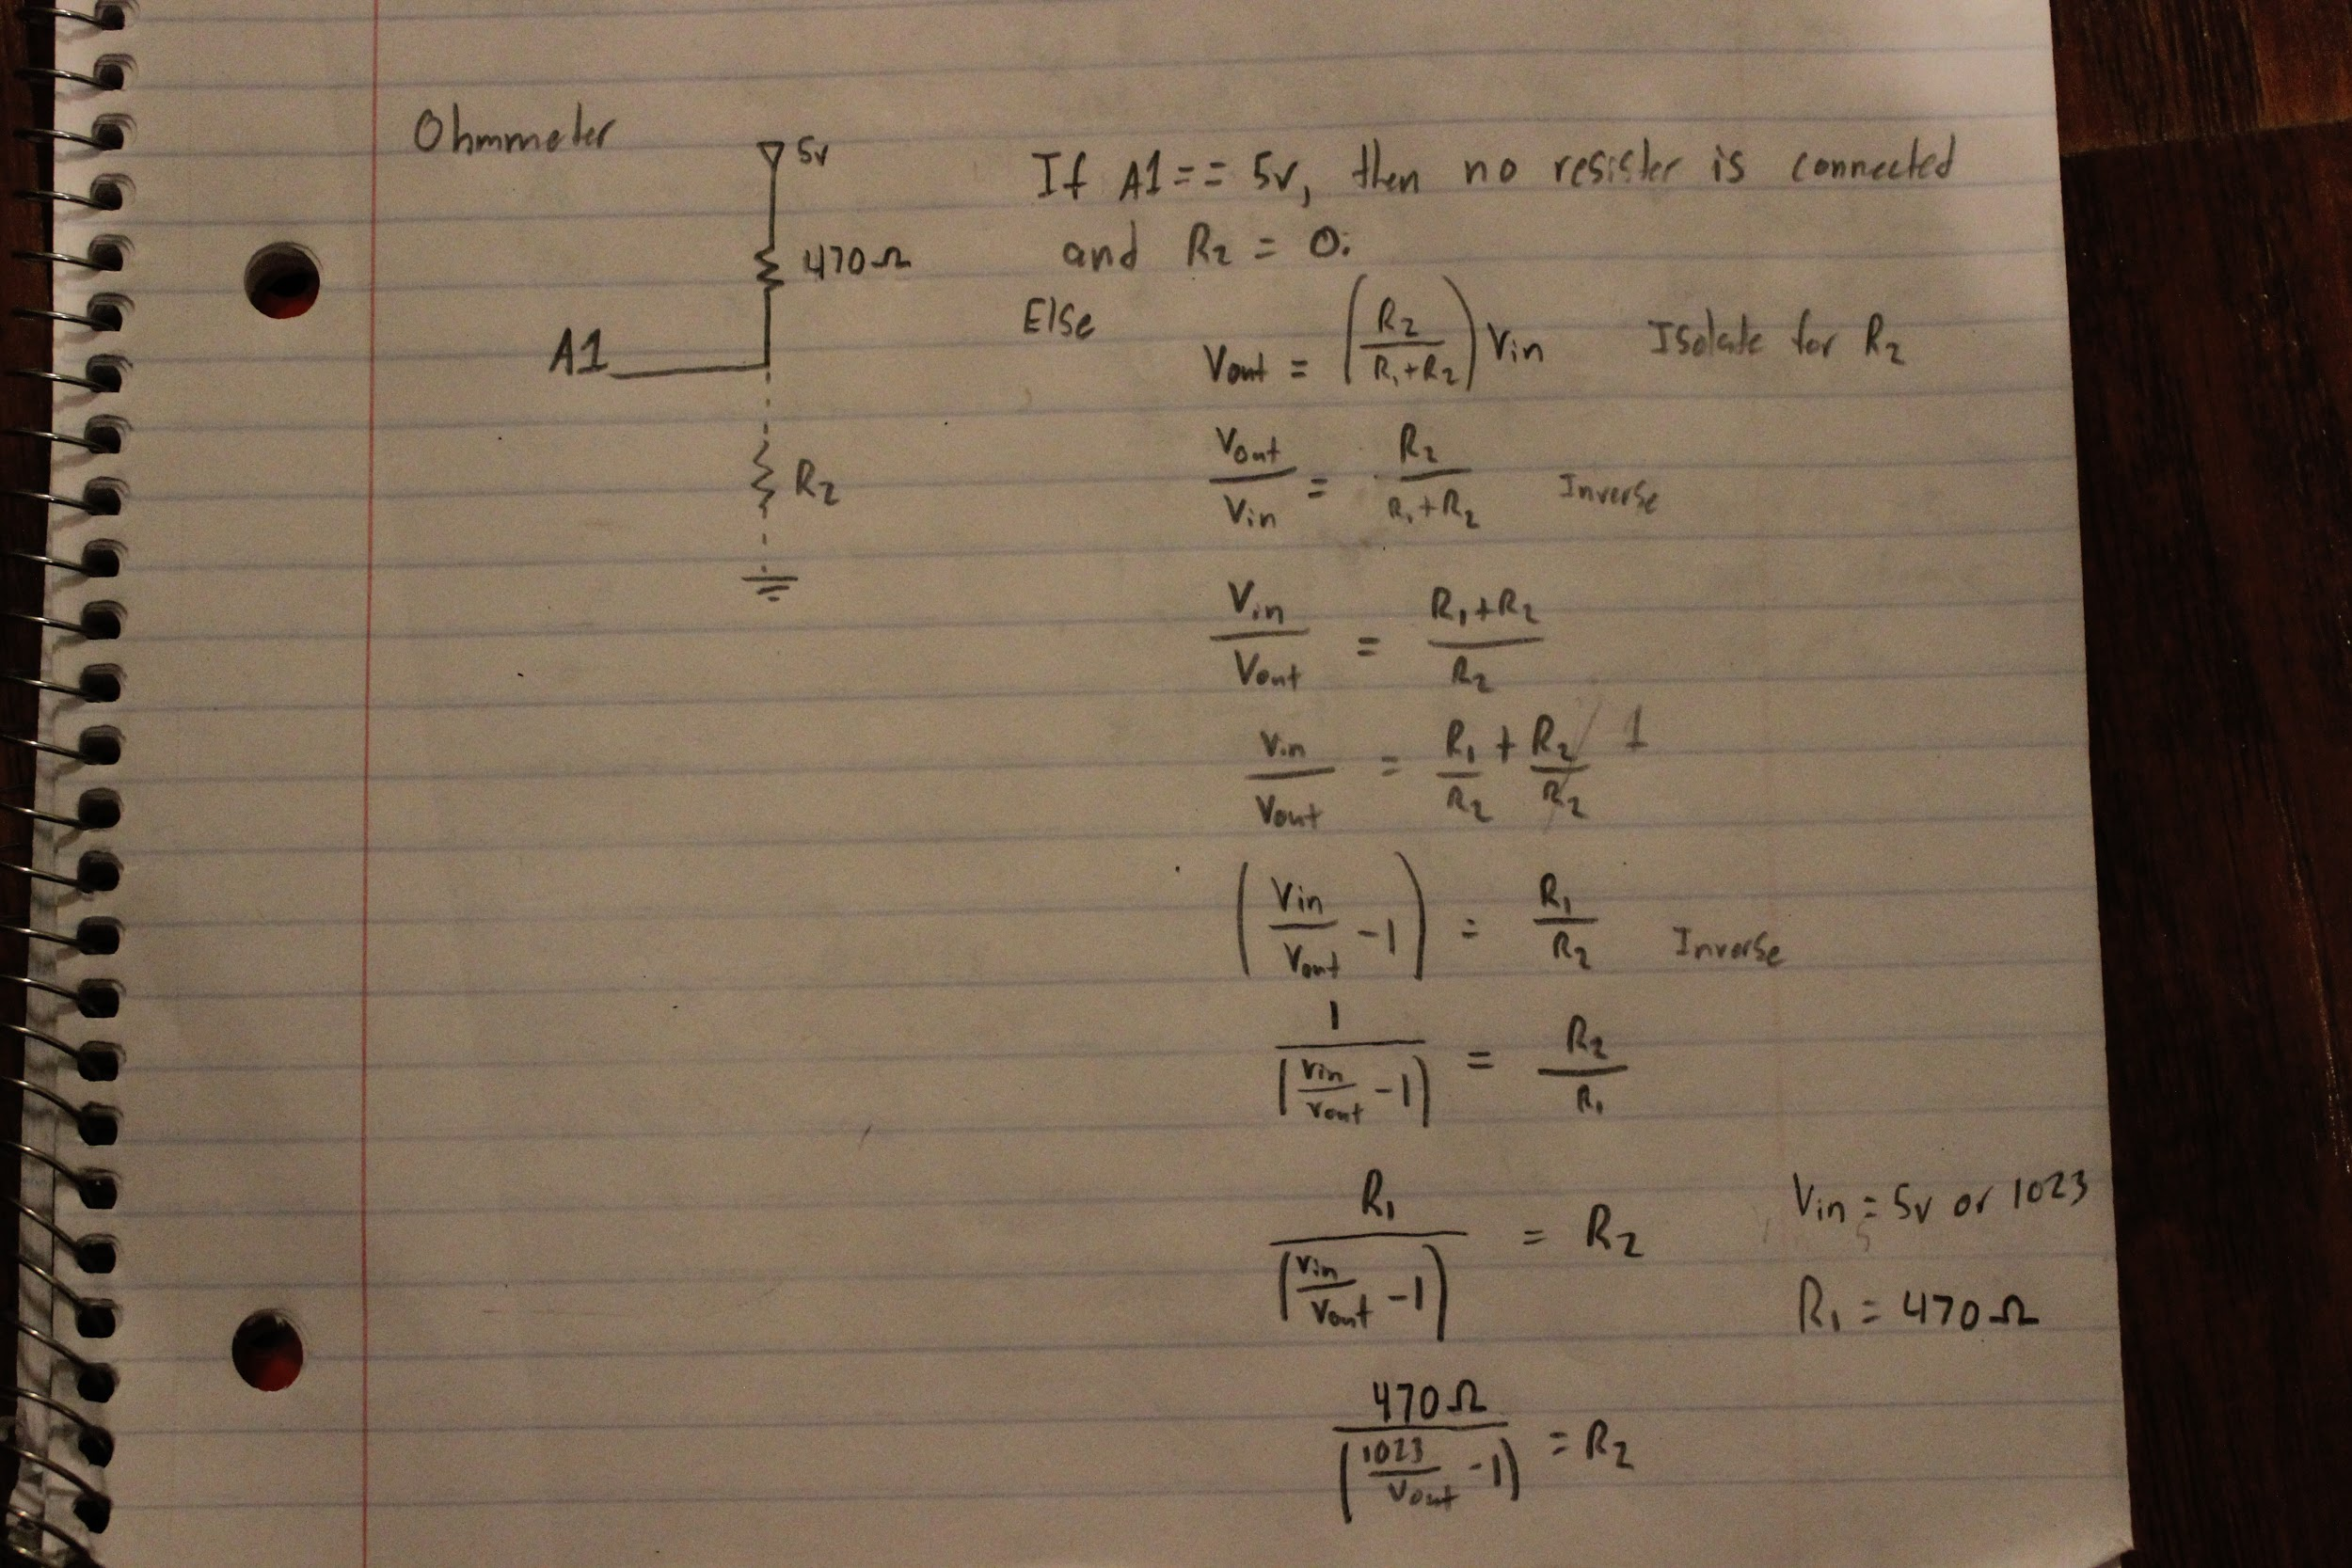 Ohmmeter
5v
470Ω
A1
R₂
If A1 == 5v, then no resister is connected
and R₂ = 0.
Else
Vout = (R₂ / (R₁+R₂)) Vin Isolate for R₂
Vout / Vin = R₂ / (R₁+R₂) Inverse
Vin / Vout = (R₁+R₂) / R₂
Vin / Vout = R₁ / R₂ + R₂ / R₂ 1
(Vin / Vout - 1) = R₁ / R₂ Inverse
1 / (Vin / Vout - 1) = R₂ / R₁
R₁ / (Vin / Vout - 1) = R₂
Vin = 5v or 1023
R₁ = 470Ω
470Ω / (1023 / Vout - 1) = R₂